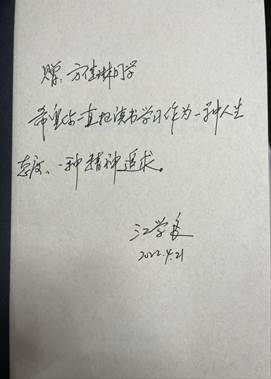 赠：方佳琳同学
希望你一直把读书学习作为一种人生
态度、一种精神追求。
江学
2022.4.21